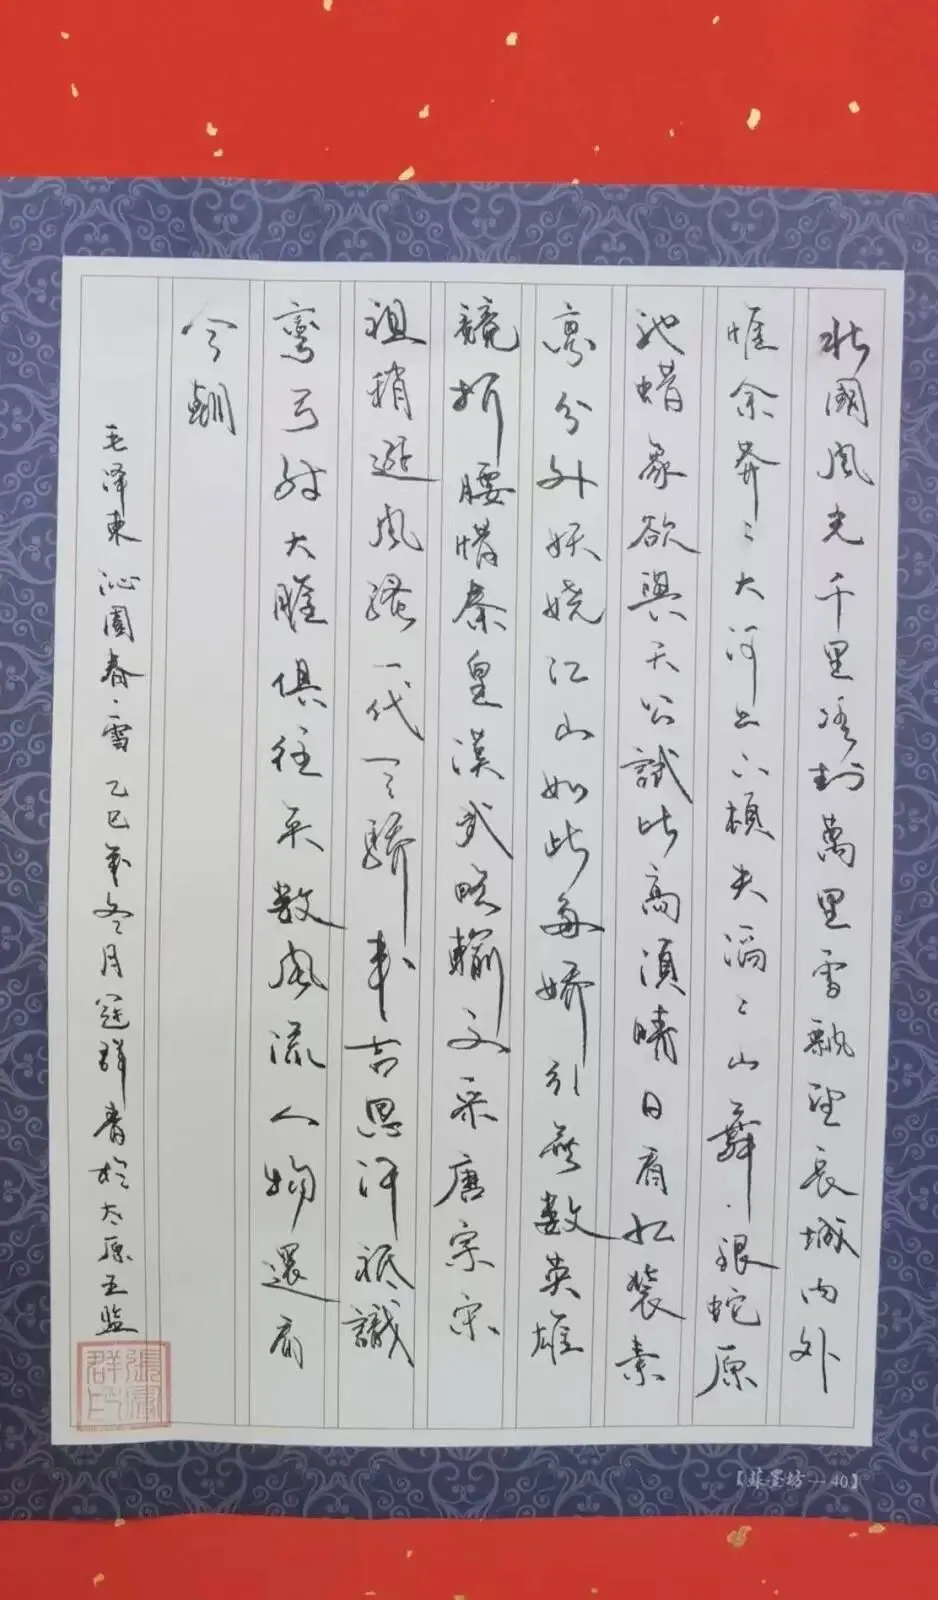 北國風光千里冰封萬里雪飄望長城内外
惟余莽〻大河上下頓失滔〻山舞銀蛇原
馳蜡象欲與天公試比高須晴日看紅裝素
裹分外妖嬈江山如此多嬌引無數英雄
競折腰惜秦皇漢武略輸文采唐宗宋
祖稍遜風騷一代天驕成吉思汗祗識
彎弓射大雕俱往矣數風流人物還看
今朝
毛澤東沁園春·雪乙巳年冬月冠群書於太原五監
【蘇墨坊—40】